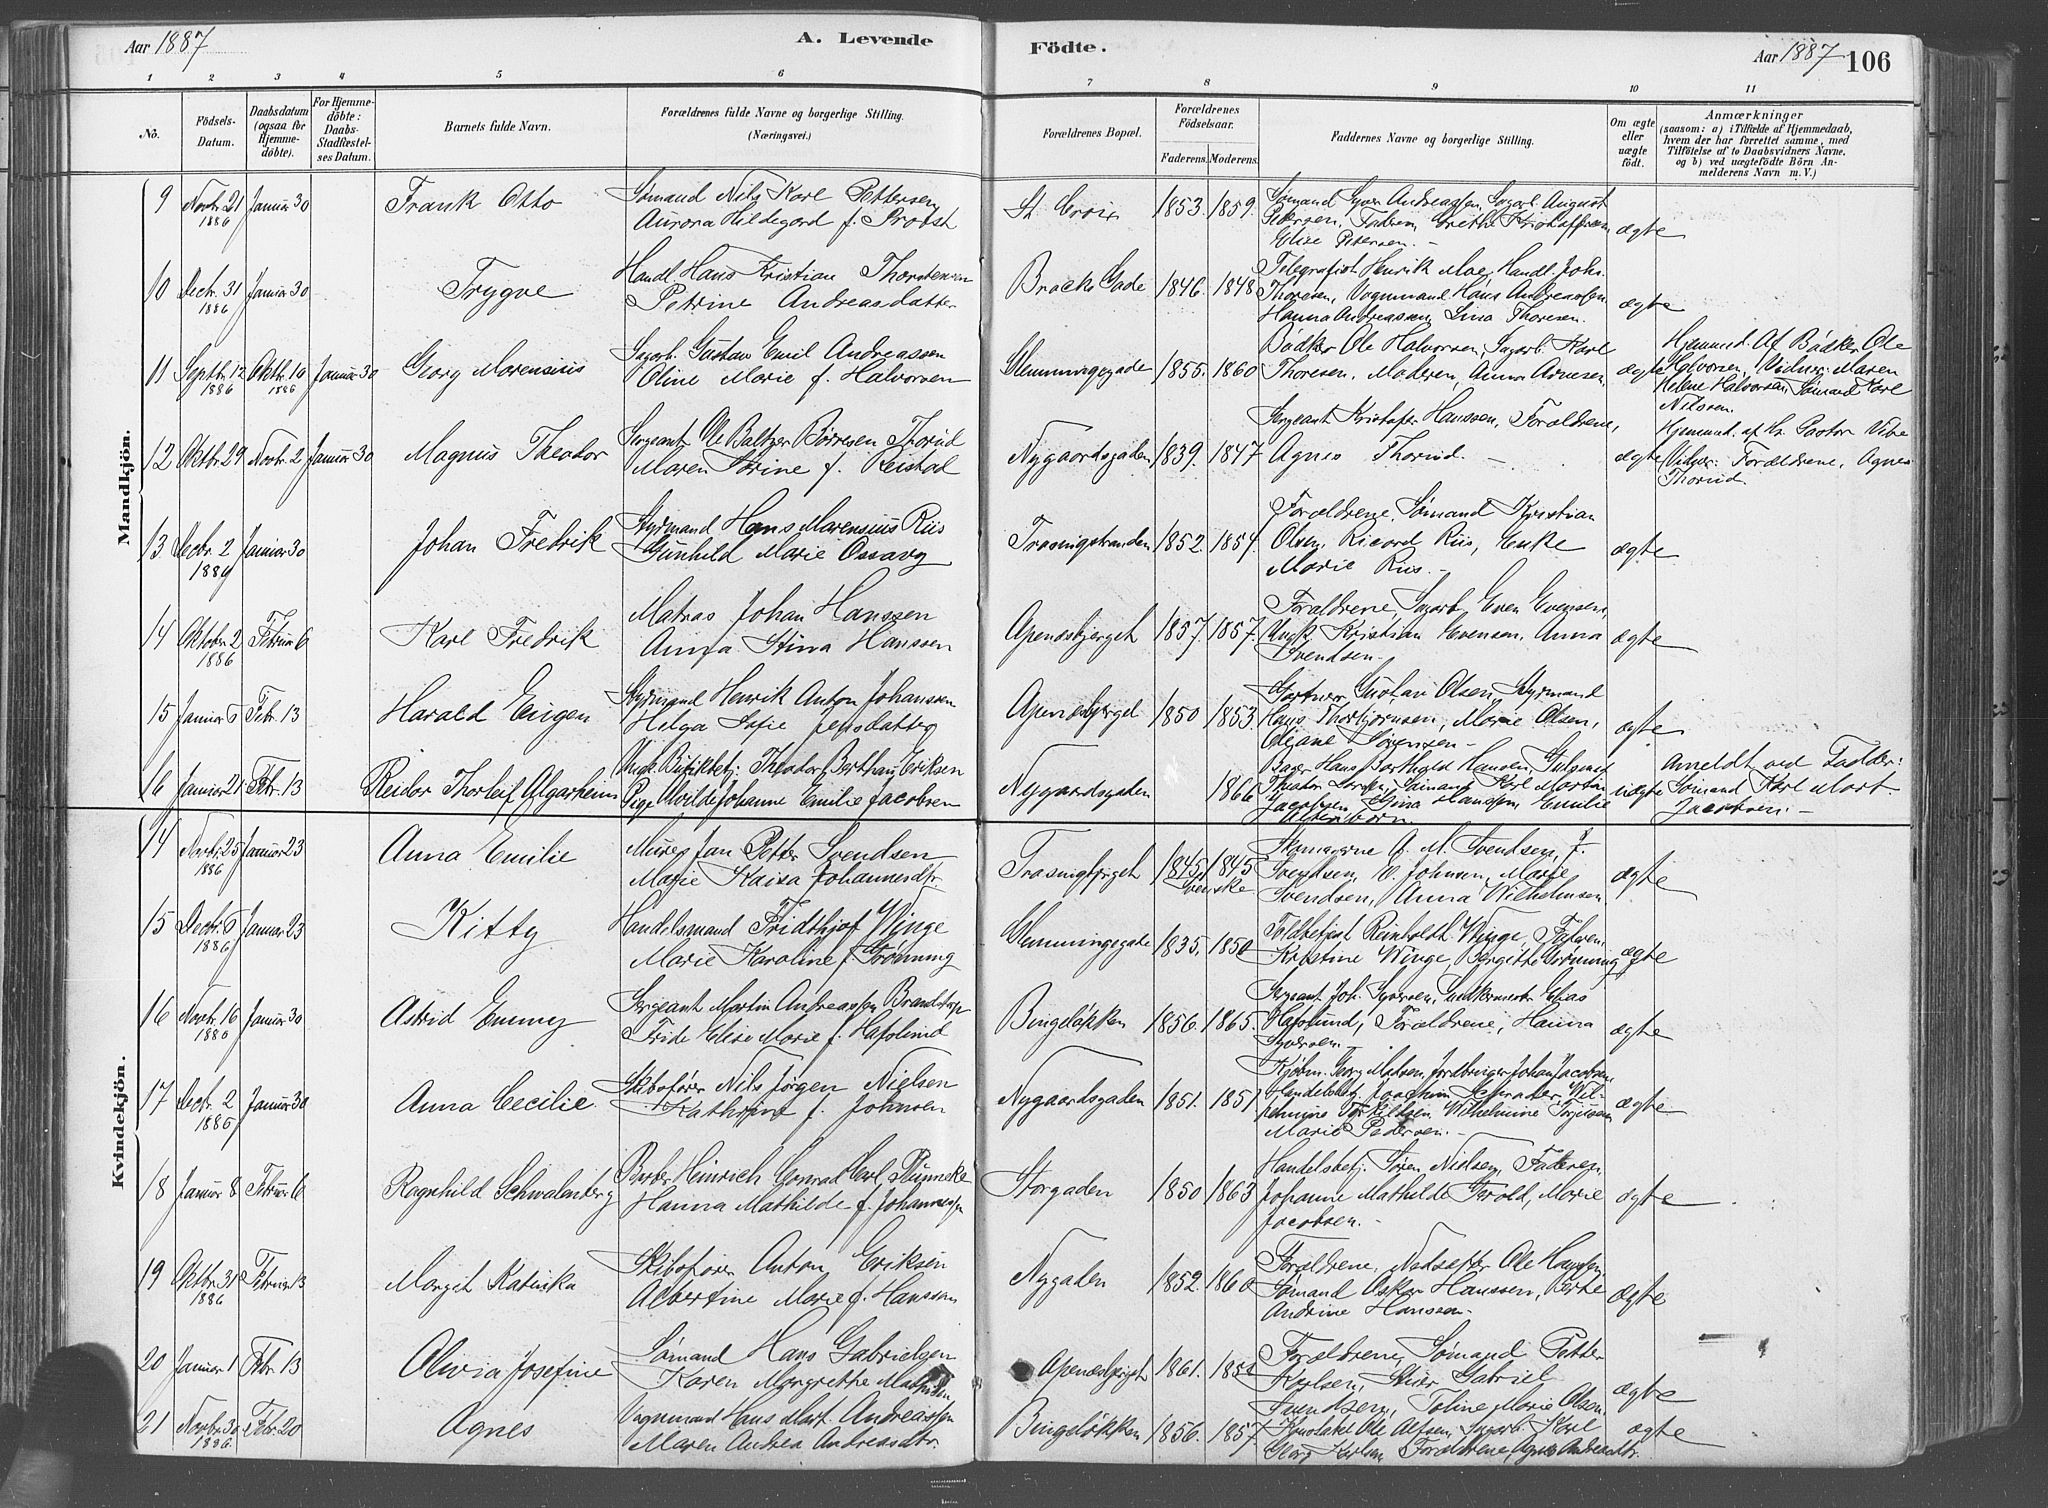 Aar 1887
A. Levende
Födte.
Aar 1887
106
1 2 3 4 5 6 7 8 9 10 11
No.
Födsels-Datum.
Daabsdatum (ogsaa for Hjemme-döbte).
For Hjemme-döbte: Daabs-Stadfæstel-ses Datum.
Barnets fulde Navn.
Forældrenes fulde Navne og borgerlige Stilling. (Næringsvei.)
Forældrenes Bopæl.
Forældrenes Födselsaar.
Faderens. Moderens.
Faddernes Navne og borgerlige Stilling.
Om ægte eller uægte födt.
Anmærkninger
(saasom: a) i Tilfælde af Hjemmedaab,
hvem der har forrettet samme, med
Tilföielse af to Daabsvidners Navne,
og b) ved uægtefödte Börn An-
melderens Navn m. V.)
Mandkjön.
9 Novbr. 21 1886 Januar 30 Frank Otto Sømand Nils Karl Pettersen
Aurora Hildegard f. Probst
St. Croix 1853. 1859.
Sømand Syver Andreassen, Sagarb. August
Petersen, Faderen, Grethe Kristoffersen
Elise Petersen.
ægte
10 Decbr. 31 1886 Januar 30 Trygve Handl. Hans Kristian Thorstensen
Petrine Andreasdatter
Brocks Gade 1846. 1848
Telegrafist Henrik Moe, Handl. Johs.
Thoresen, Vognmand Hans Andreassen
Hanna Andreassen, Lina Thoresen.
ægte
11 Septbr. 12 1886 Oktbr. 10 1886 Januar 30 Georg Marensius Sagarb. Gustav Emil Andreassen
Oline Marie f. Halvorsen
Glemmingegade 1855. 1860
Bødker Ole Halvorsen, Sagarb. Karl
Thoresen, Moderen, Anna Arnesen
ægte
Hjemmed. Af Bødker Ole
Halvorsen, Vidner: Maren
Helene Halvorsen, Sømand Karl
Nilssen.
12 Oktbr. 29 Novbr. 2 Januar 30 Magnus Theodor Sergeant Ole Baltzer Børresen Thorud
Maren Sørine f. Reistad
Nygaardsgaden 1839. 1847
Sergeant Kristofer Hanssen, Forældrene,
Agnes Thorud.
ægte
Hjemmed. af Hr. Pastor Vibe
Vidner: Forældrene, Agnes
Thorud.
13. Decbr. 2 Januar 30 Johan Fredrik Styrmand Hans Marensius Riis
Gunhild Marie Ossavy
Trosvigstranden 1852. 1854.
Forældrene, Sømand Kristian
Olsen, Ricard Riis, Enke
Marie Riis.
ægte
14 Oktober 2 1886 Februar 6 Karl Fredrik Matros Johan Hanssen
Anna Stina Hanssen
Apenæsbjerget 1857. 1857.
Forældrene, Sagarb. Even Evensen,
Ungk. Kristian Evensen, Anna
Svendsen.
ægte
15 Januar 6 Febr. 13 Harald Eugen Styrmand Henrik Anton Johanssen
Helga Sofie Jensdatter
Apenæsbjerget 1850 1853.
Gartner Gustav Olsen, Styrmand
Hans Thorbjørnsen, Marie Olsen,
Oleane Sørensen
ægte
16 Januar 21 Febr. 13 Reidar Thorleif Algarheim Ungk. Butikbetj. Theodor Berthau Eriksen
Pige Alvilde Johanne Emilie Jacobsen
Nygaardsgaden 1866
Bager Hans Barthold Hansen, Gulsmed
Theodor Larsen, Sømand Karl Martin
Jacobsen, Gina Hanssen, Emilie
uægte
Anmeldt ved Fadder:
Sømand Karl Mart.
Jacobsen.
Kvindekjön.
14 Novbr. 25 1886 Januar 23 Anna Emilie Murer Jan Petter Svendsen
Marie Kaisa Johannesdtr.
Trosvigbjerget 1845 1845
Svenske
Skomagerne A. M. Svendsen, J.
Svendsen, E. Johnsen, Marie
Svendsen, Anna Wilhelmsen
ægte
15 Decbr. 6 1886 Januar 23 Kitty Handelsmand Fridthjof Winge
Marie Karoline f. Grønning
Glemmingegade 1835. 1850
Toldbetjent Reinholdt Winge, Faderen,
Kristine Winge, Bergitte Grønning
ægte
16 Novbr. 16 1886 Januar 30 Astrid Emmy Sergeant Martin Andreassen Brandstorp
Fride Elise Marie f. Hafslund
Bingeløkken 1856. 1865.
Sergeant Joh. Syversen, Snedkermester Elias
Hafslund, Forældrene, Hanna
Syversen.
ægte
17 Decbr. 2 1886 Januar 30 Anna Cecilie. Skibsfører Nils Jørgen Nielsen
Kathrine f. Johnsen
Nygaardsgaden 1851. 1851
Kjøbm. Georg Madsen, Jordbruger Johan Jacobsen,
Handelsbetj. Joachim Schrader, Wil-
helmine Torkildsen, Wilhelmine
Marie Pedersen.
ægte
18 Januar 8 Februar 6 Ragnhild Schwalenberg Barber Heinrich Conrad Carl Plümeke
Hanna Mathilde f. Johannessen
Storgaden 1850 1863
Handelsbetj. Søren Nielsen, Faderen,
Johanne Mathilde Harold, Marie
Jacobsen.
ægte
19 Oktbr. 31 1886 Februar 13 Margit Katinka Skibsfører Anton Eriksen
Albertine Marie f. Hanssen
Nygaden 1852. 1860
Forældrene, Ole Hanssen,
Sømand Oskar Hanssen, Berthe
Andrine Hanssen.
ægte
20 Januar 1 Febr. 13 Olivia Josefine Sømand Hans Gabrielsen
Karen Margrethe
Apenæsbjerget 1861.
Forældrene, Sømand Petter
Karlsen, Gabriel
Svendsen, Toline Marie Olsen
ægte
21 Novbr. 30 1886 Febr. 20 Agnes Vognmand Hans Mart. Andreassen
Maren Andrea Andreasdtr.
Bingeløkken 1856. 1857.
Ole Olsen, Sagarb. Karl
Georg Karlsen, Forældrene, Agnes Andreasdtr.
ægte